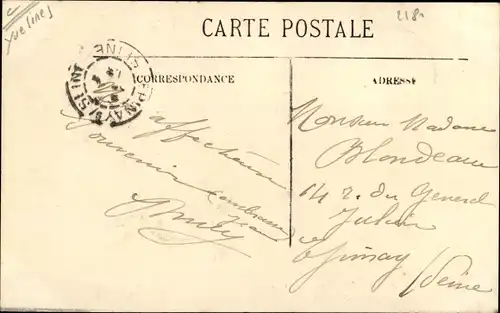 Yvelines
218
CARTE POSTALE
CORRESPONDANCE
ADRESSE
EPINAY S/ SEINE
affectueux
Souvenir
Emily
Monsieur Madame
Blondeau
14 r. du General
Julien
Epinay
Seine